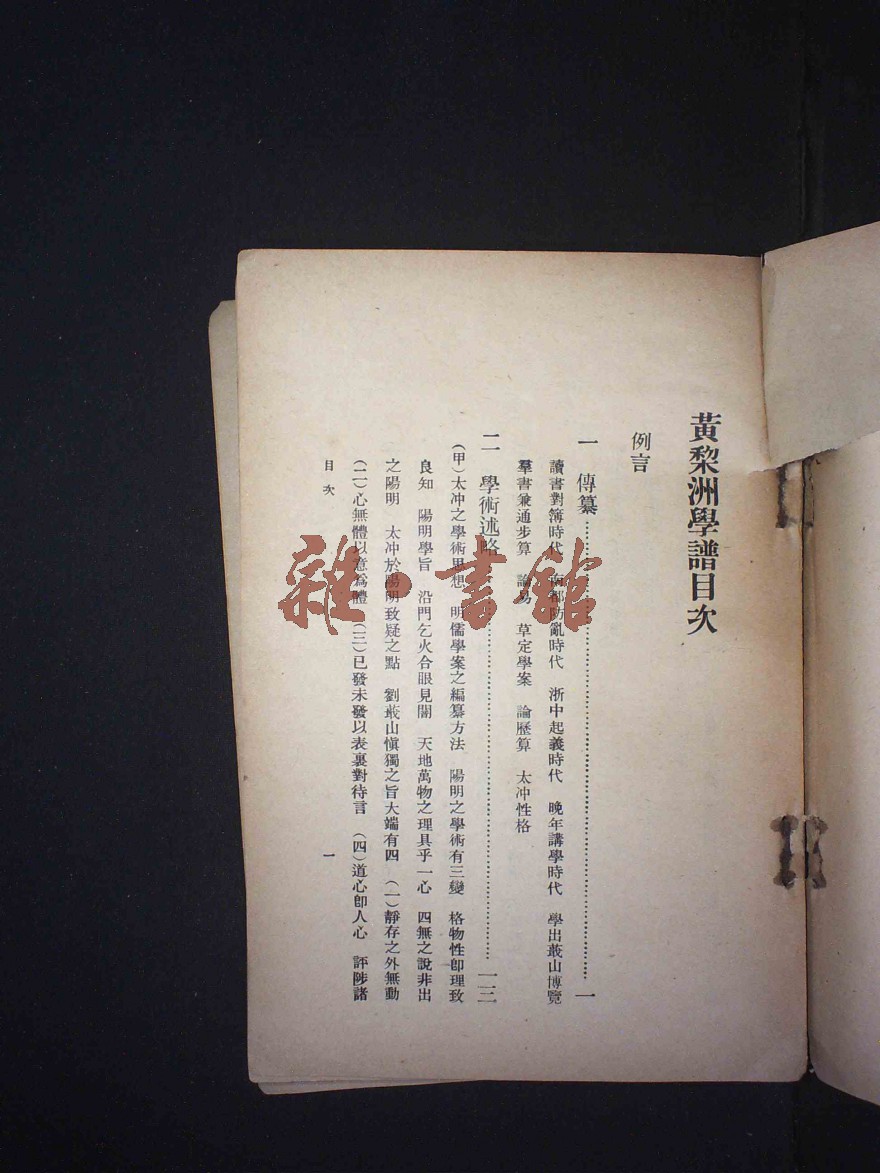 黃黎洲學譜目次
例言
一 傳纂……一
讀書對簿時代 南都防亂時代 浙中起義時代 晚年講學時代 學出蕺山博覽
羣書兼通步算 論易 草定學案 論歷算 太冲性格
二 學術述略……一三
(甲)太冲之學術思想 明儒學案之編纂方法 陽明之學術有三變 格物性卽理致
良知 陽明學旨 沿門乞火合眼見闇 天地萬物之理具乎一心 四無之說非出
之陽明 太冲於陽明致疑之點 劉蕺山愼獨之旨大端有四 (一)靜存之外無動
(二)心無體以意爲體 (三)已發未發以表裏對待言 (四)道心卽人心 評陟諸
目次 一
雜·書館